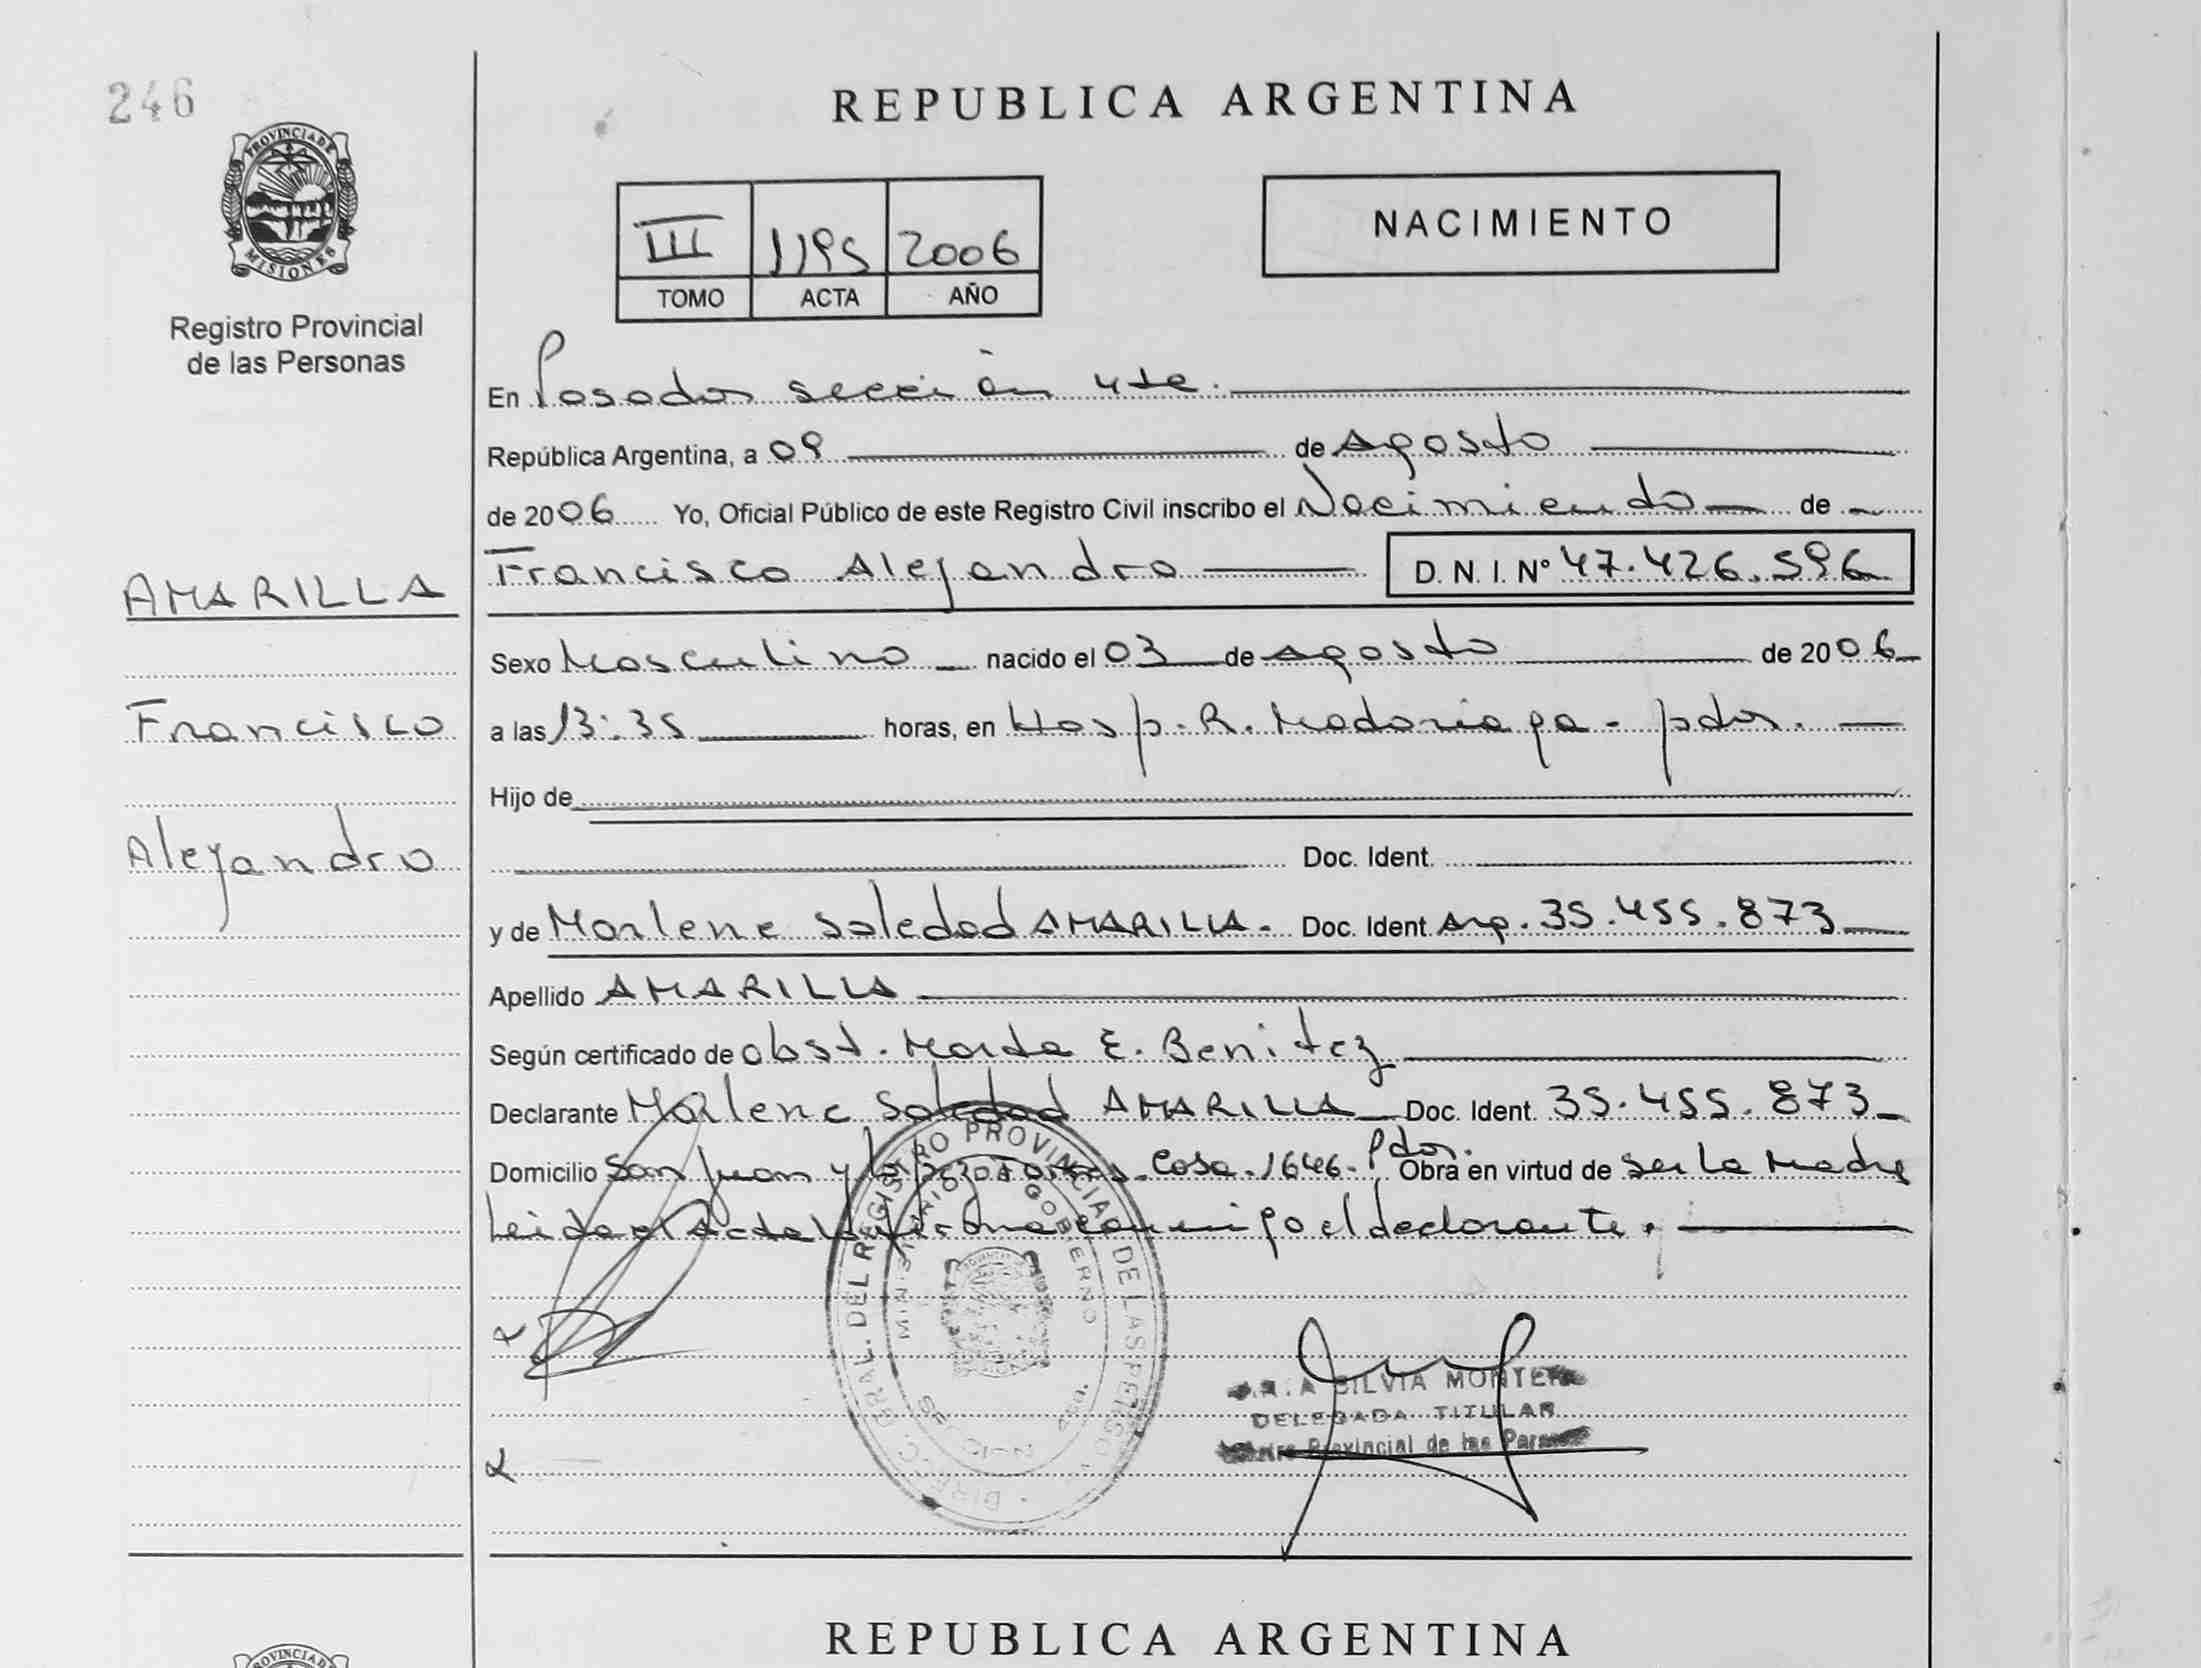 246
REPUBLICA ARGENTINA
PROVINCIA DE
MISIONES
Registro Provincial
de las Personas
NACIMIENTO
III 1195 2006
TOMO ACTA AÑO
En Posadas sección 4te.
República Argentina, a 09 de Agosto
de 2006 Yo, Oficial Público de este Registro Civil inscribo el Nacimiento de
AMARILLA
Francisco Alejandro D. N. I. Nº 47.426.596
Sexo Masculino nacido el 03 de Agosto de 2006
Francisco
a las 13:35 horas, en Hosp. R. Madariaga - pdas.
Hijo de
Alejandro
Doc. Ident.
y de Marlene Soledad AMARILLA. Doc. Ident. Arg. 35.455.873
Apellido AMARILLA
Según certificado de obst. Marta E. Benitez
Declarante Marlene Soledad AMARILLA Doc. Ident. 35.455.873
Domicilio San Juan y Casa 1646 - Pdas. Obra en virtud de ser la Madre
Leida el Acta la firma conmigo el declarante.
DIRECC. GRAL. DEL REGISTRO PROVINCIAL DE LAS PERSONAS
MINISTERIO GOBIERNO
SILVIA MONTE
DELEGADA TITULAR
Provincial de las Personas
REPUBLICA ARGENTINA
PROVINCIA DE